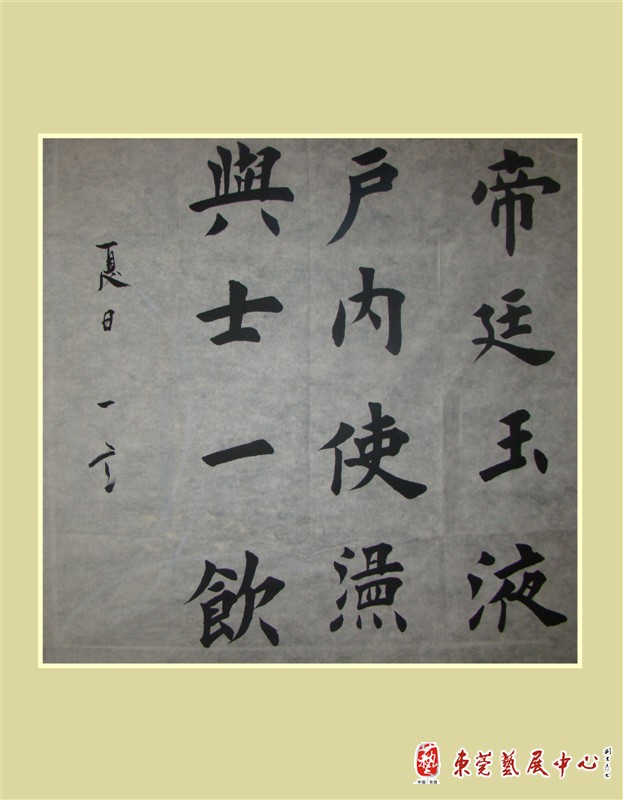 帝廷玉液
户内使
與士一飲
夏日 一
東莞藝展中心